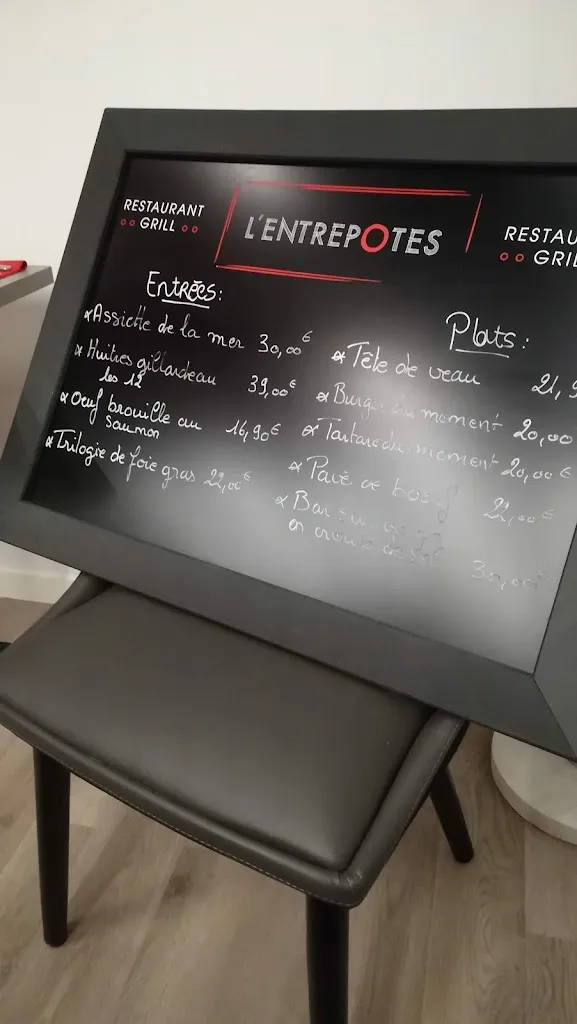 RESTAURANT
GRILL
L'ENTREPOTES
RESTAU
GRIL
Entrées:
Assiette de la mer 30,00€
Huitres gillardeau 39,00€
les 12
Oeuf brouille au 16,90€
saumon
Trilogie de foie gras 22,00€
Plats:
Tête de veau 21,9
Burger du moment 20,00
Tartare du moment 20,00€
Pavé de boeuf 22,00€
Bar
en croute de sel 30,00€